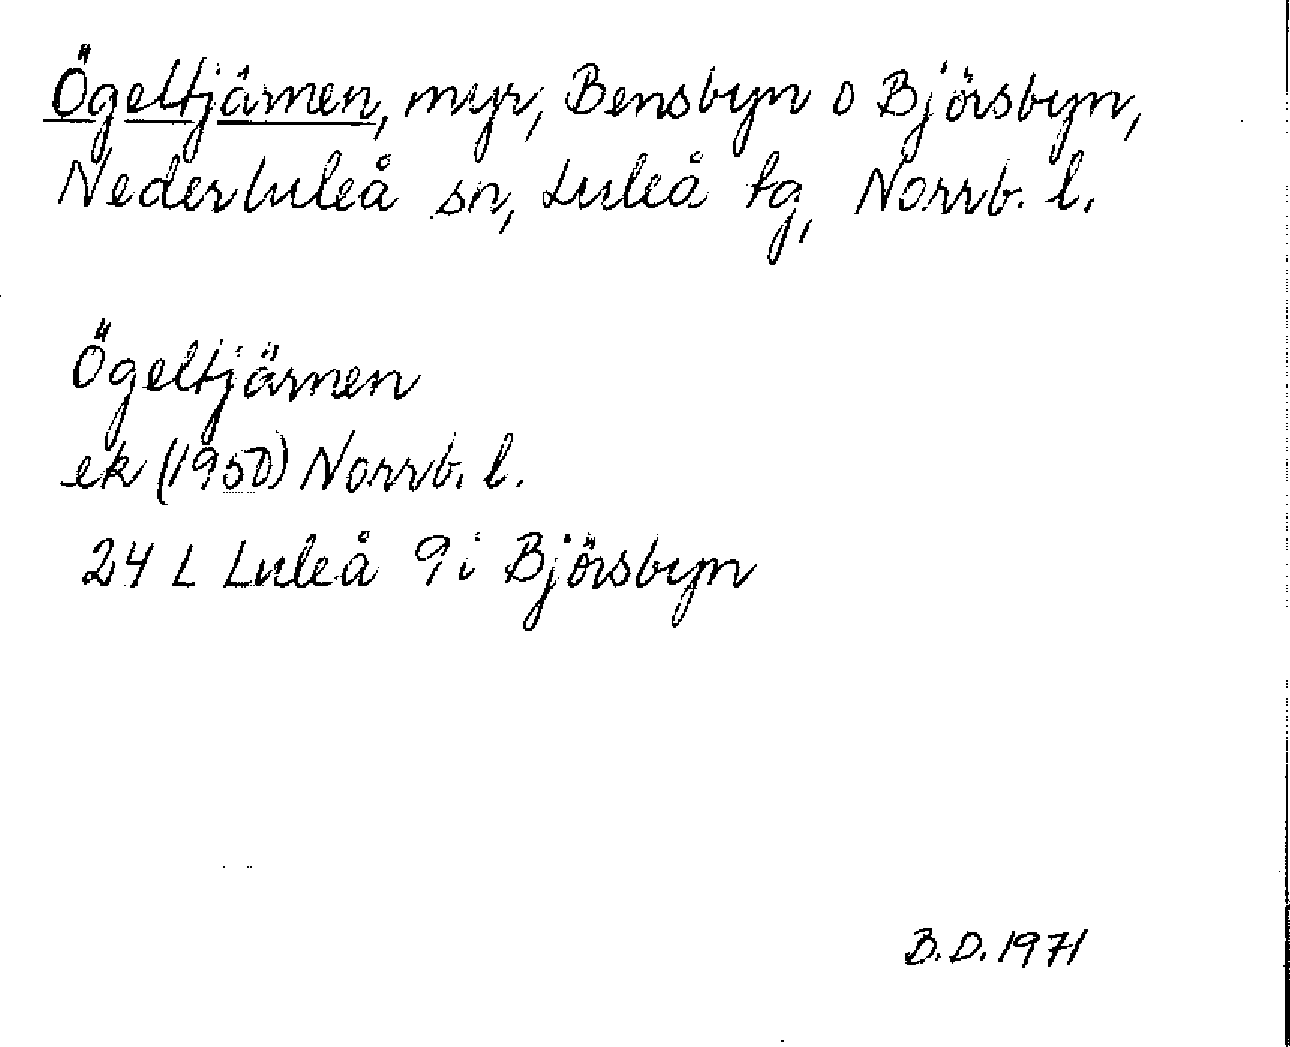 Ögeltjärnen, myr, Bensbyn o Björsbyn,
Nederluleå sn, Luleå tg, Norrb. l.
Ögeltjärnen
ek (1950) Norrb. l.
24 L Luleå 9i Björsbyn
B.D. 1971